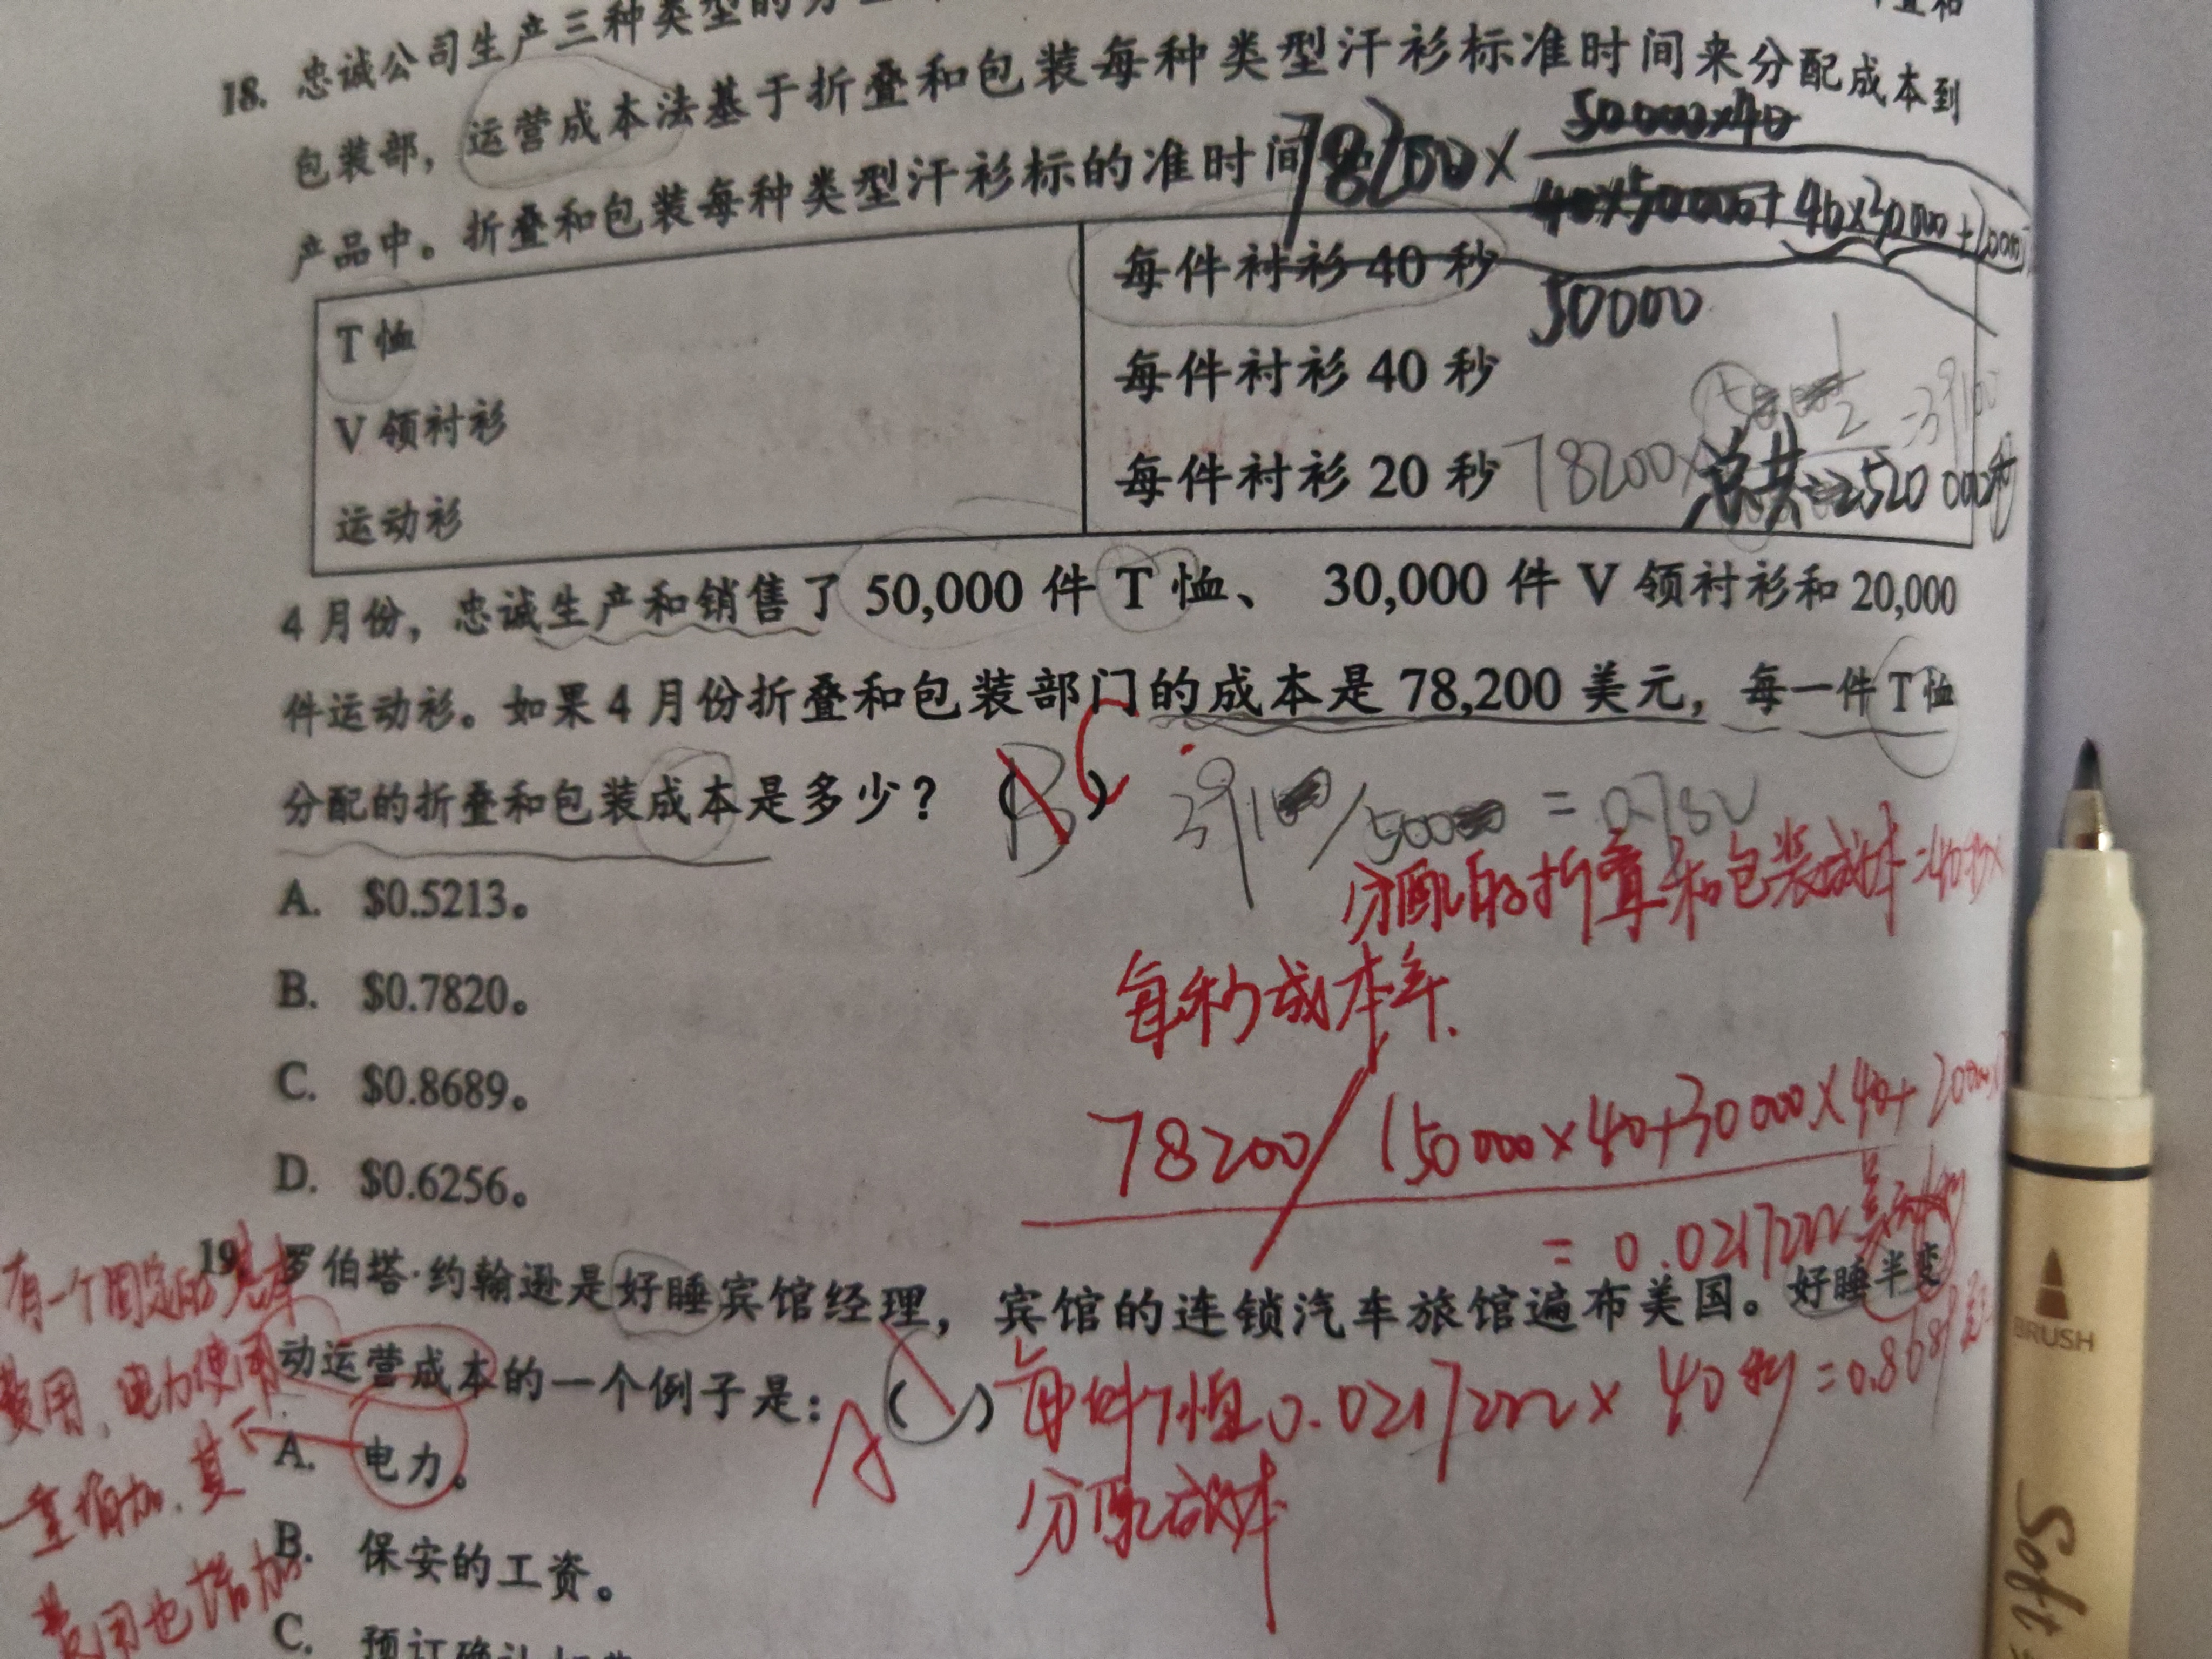 18. 忠诚公司生产三种类型的
包装部，运营成本法基于折叠和包装每种类型汗衫标准时间来分配成本到
产品中。折叠和包装每种类型汗衫标的准时间
78200×
50000×40
40×50000+40×30000+
50000
T 恤
每件衬衫 40 秒
V 领衬衫
每件衬衫 40 秒
运动衫
每件衬衫 20 秒
78200×
总共=2520 000秒
4 月份，忠诚生产和销售了 50,000 件 T 恤、 30,000 件 V 领衬衫和 20,000
件运动衫。如果 4 月份折叠和包装部门的成本是 78,200 美元，每一件 T 恤
分配的折叠和包装成本是多少？（B）C
= 0.782
A. $0.5213。
B. $0.7820。
C. $0.8689。
D. $0.6256。
分配的折叠和包装成本=40秒×
每秒成本率.
78200/(50000×40+30000×40+
= 0.0217222美元/秒
19. 罗伯塔·约翰逊是好睡宾馆经理，宾馆的连锁汽车旅馆遍布美国。好睡半变
动运营成本的一个例子是：（ ）A
每件T恤0.0217222×40秒=0.8689
分配成本
A. 电力。
B. 保安的工资。
C. 预订确认
有一个固定的基本
费用，电力使用
量增加，其
费用也增加
BRUSH
Soft